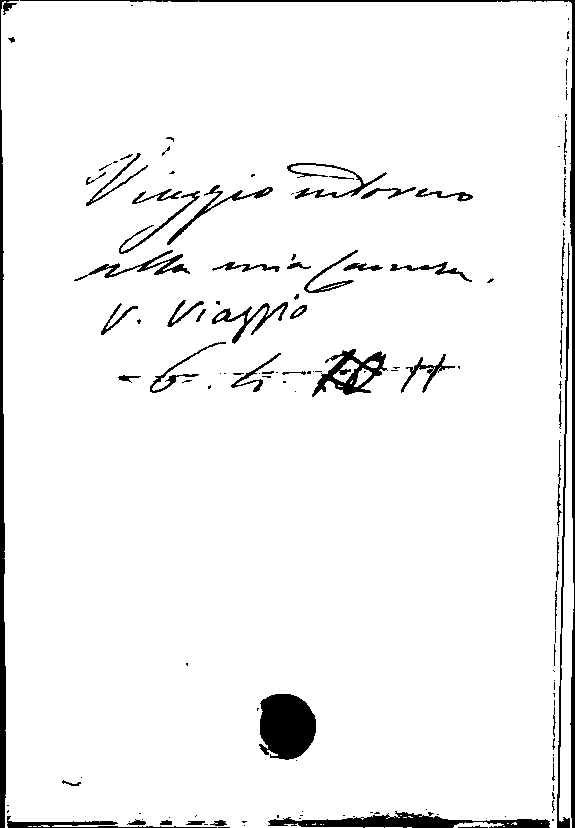 Viaggio intorno
alla mia Camera.
V. Viaggio
6. 4. 11